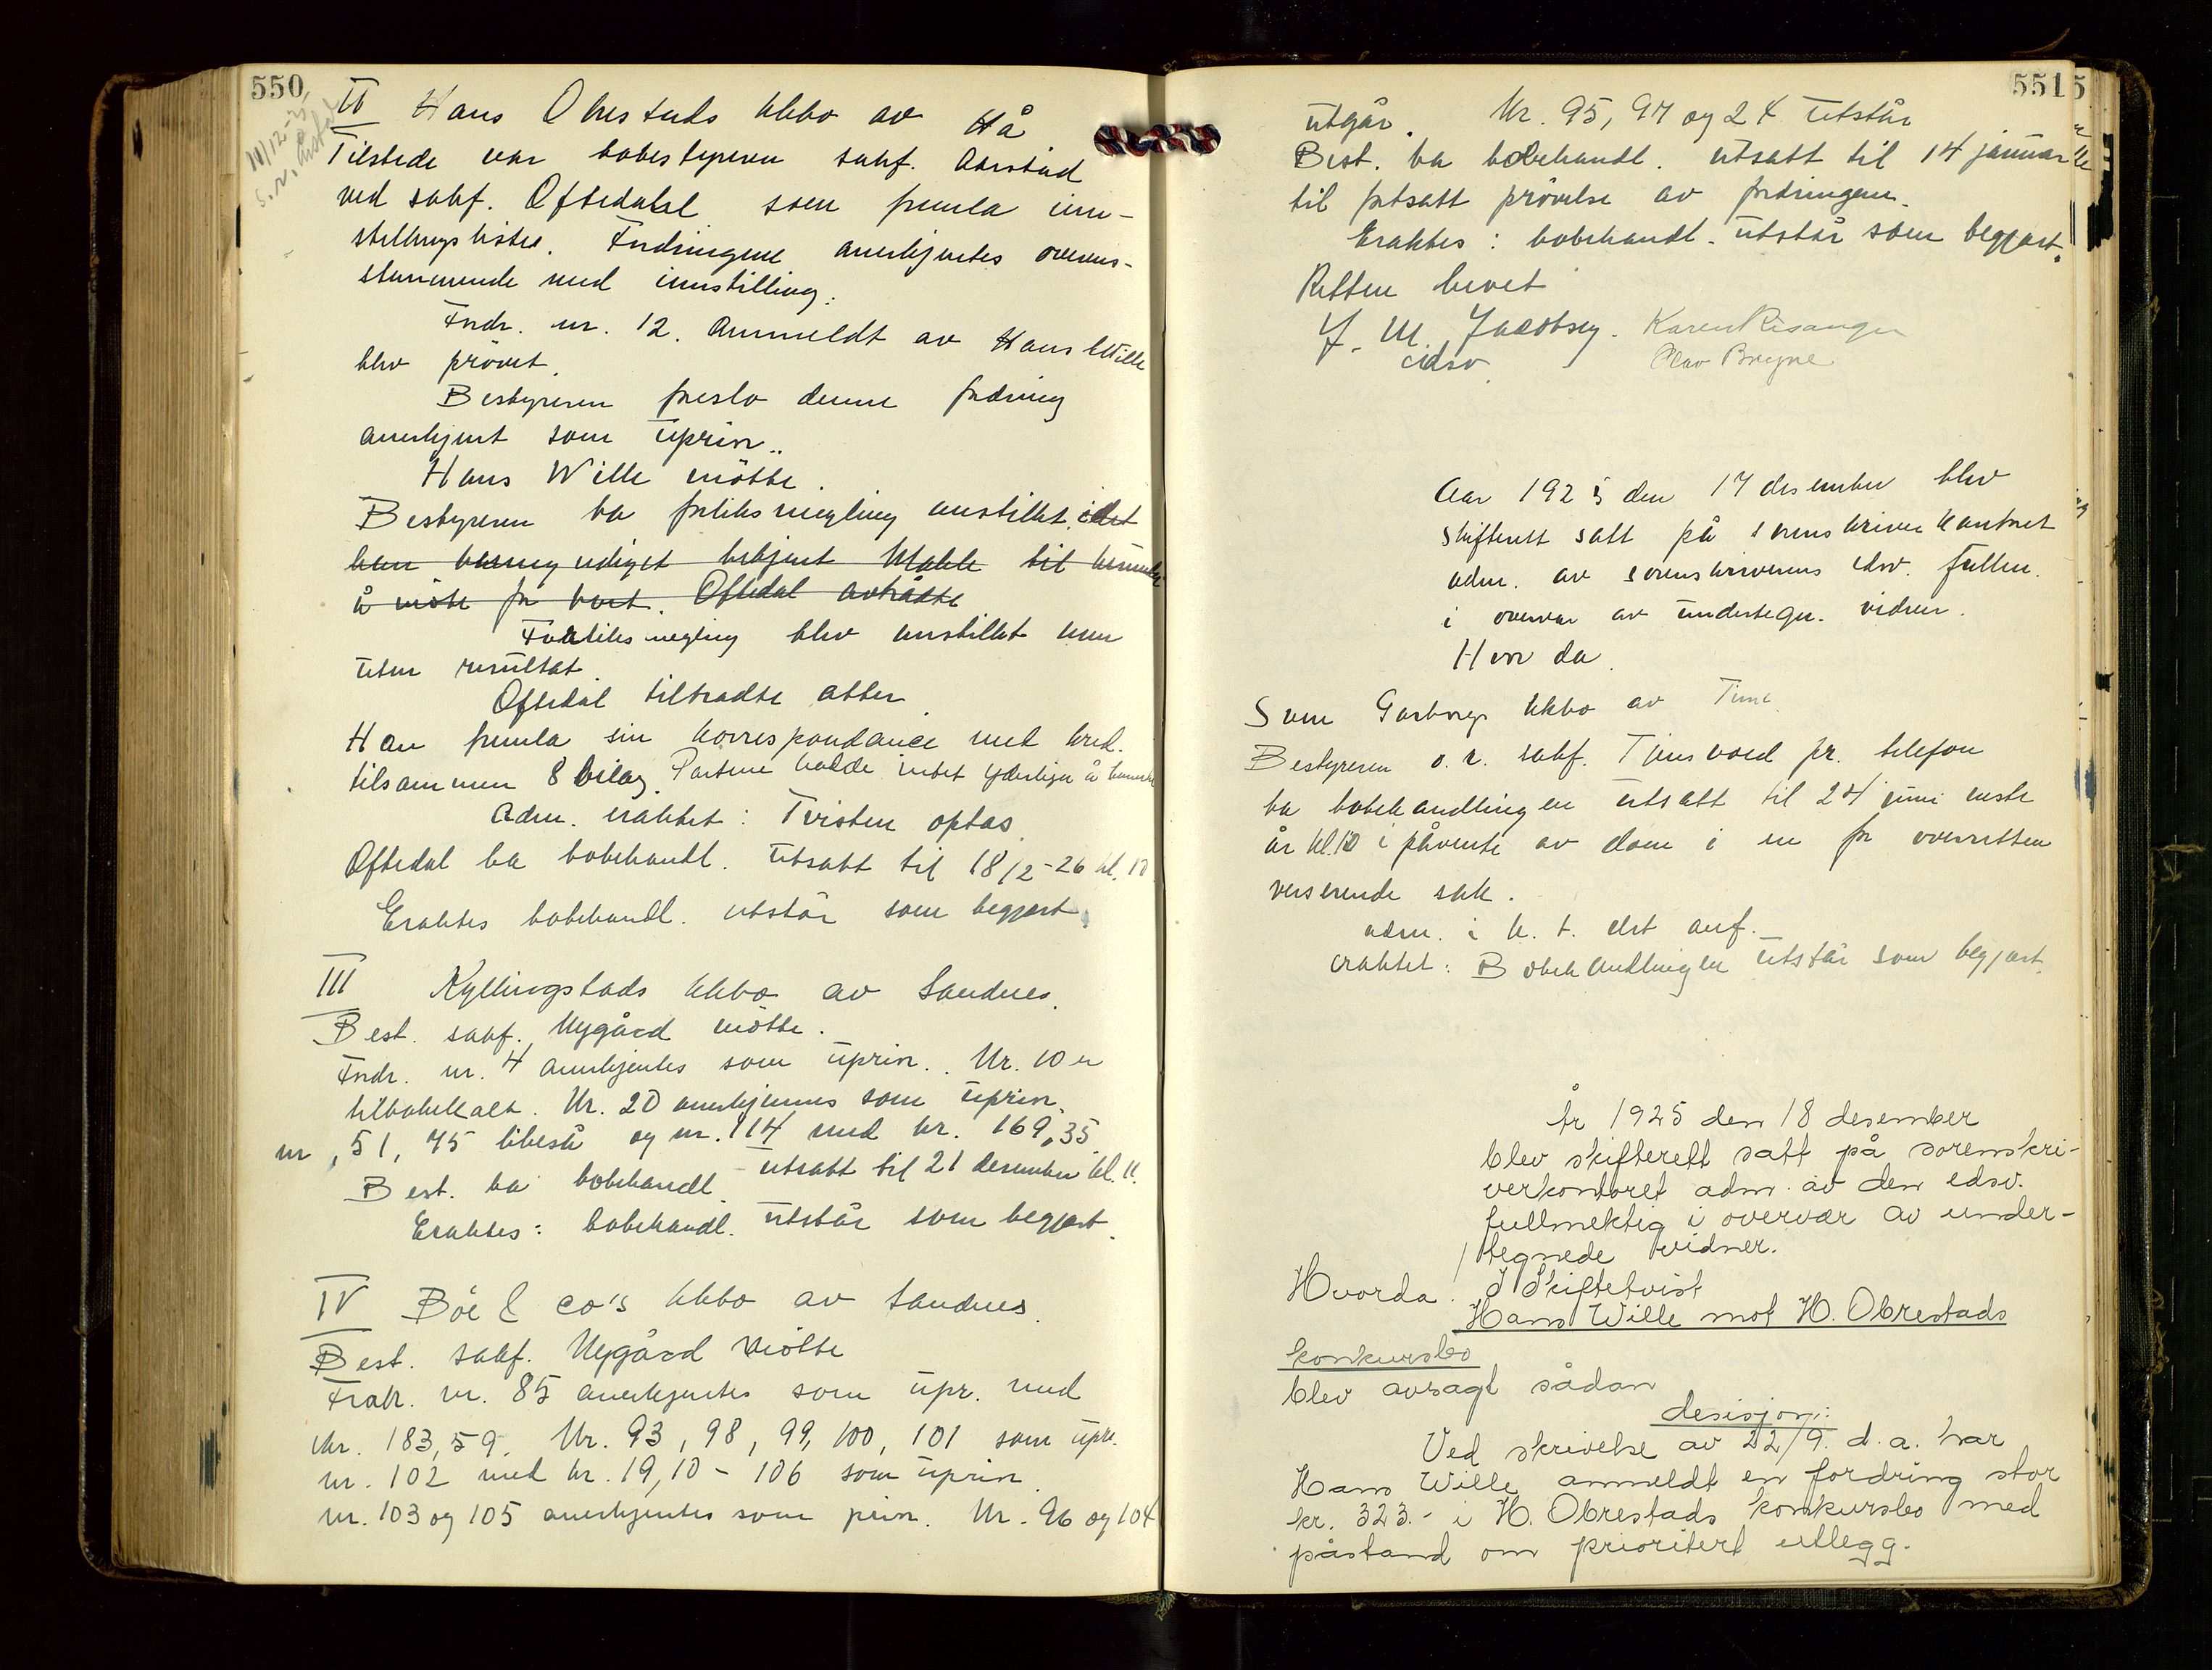 550
II Hans Obrestads kkbo av Hå
Tilstede var bobestyreren sakf. Aarstad
ved sakf. Oftedal som fremla inn-
stillingslisten. Fordringene anerkjentes overens-
stemmende med innstilling.
Fordr. nr. 12. anmeldt av Hans Wille
blev prövet.
Bestyreren foreslo denne fordring
anerkjent som uprior.
Hans Wille mötte.
Bestyreren ba forliksmegling anstillet, idet
han bemyndiget betjent til
å möte for boet. Oftedal avtrådte
Forliksmegling blev anstillet men
uten resultat.
Oftedal tiltrådte atter.
Han fremla sin korrespondance med kred.
tilsammen 8 bilag. Partene hadde intet yderligere å bemerke
Adm. eraktet: Tvisten optas.
Oftedal ba bobehandl. utsatt til 18/2-26 kl. 10
Eraktes bobehandl. utstår som begjært.
III Kyllingstads kkbo av Sandnes.
Best. sakf. Nygård mötte.
Fordr. nr. 4 anerkjentes som uprior. Nr. 10 er
tilbakekalt. Nr. 20 anerkjennes som uprior.
nr. 51, 75 likeså og nr. 114 med kr. 169,35.
Best. ba bobehandl. utsatt til 21 desember kl. 11.
Eraktes: bobehandl. utstår som begjært.
IV Böe & co's kkbo av Sandnes.
Best. sakf. Nygård mötte
Fordr. nr. 85 anerkjentes som upr. med
kr. 183,59. Nr. 93, 98, 99, 100, 101 som upr.
nr. 102 med kr. 19,10 - 106 som uprior.
nr. 103 og 105 anerkjentes som prior. Nr. 96 og 104
551
utgår. Nr. 95, 97 og 24 utstår
Best. ba bobehandl. utsatt til 14 januar
til fortsatt prövelse av fordringene.
Eraktes: bobehandl. utstår som begjært.
Retten hevet
J. M. Jacobsen. Karen Risanger
edsv. Olav Bryne
Aar 1925 den 17 desember blev
skifterett satt på sorenskriverkontoret
adm. av sorenskriverens edsv. fullm.
i overvær av undertegn. vidner.
Hvor da.
Sven Garborgs kkbo av Time
Bestyreren o.r. sakf. Tjensvold pr. telefon
ba bobehandlingen utsatt til 24 juni neste
år kl. 10 i påvente av dom i en for overretten
verserende sak.
adm. i h. t. det anf.
eraktet: Bobehandlingen utstår som begjært.
År 1925 den 18 desember
blev skifterett satt på sorenskri-
verkontoret adm. av den edsv.
fullmektig i overvær av under-
tegnede vidner.
Hvorda. I Skiftetvist
Hans Wille mot H. Obrestads
konkursbo
blev avsagt sådan
desisjon:
Ved skrivelse av 22/9. d.a. har
Hans Wille anmeldt en fordring stor
kr. 323.- i H. Obrestads konkursbo med
påstand om prioritert utlegg.